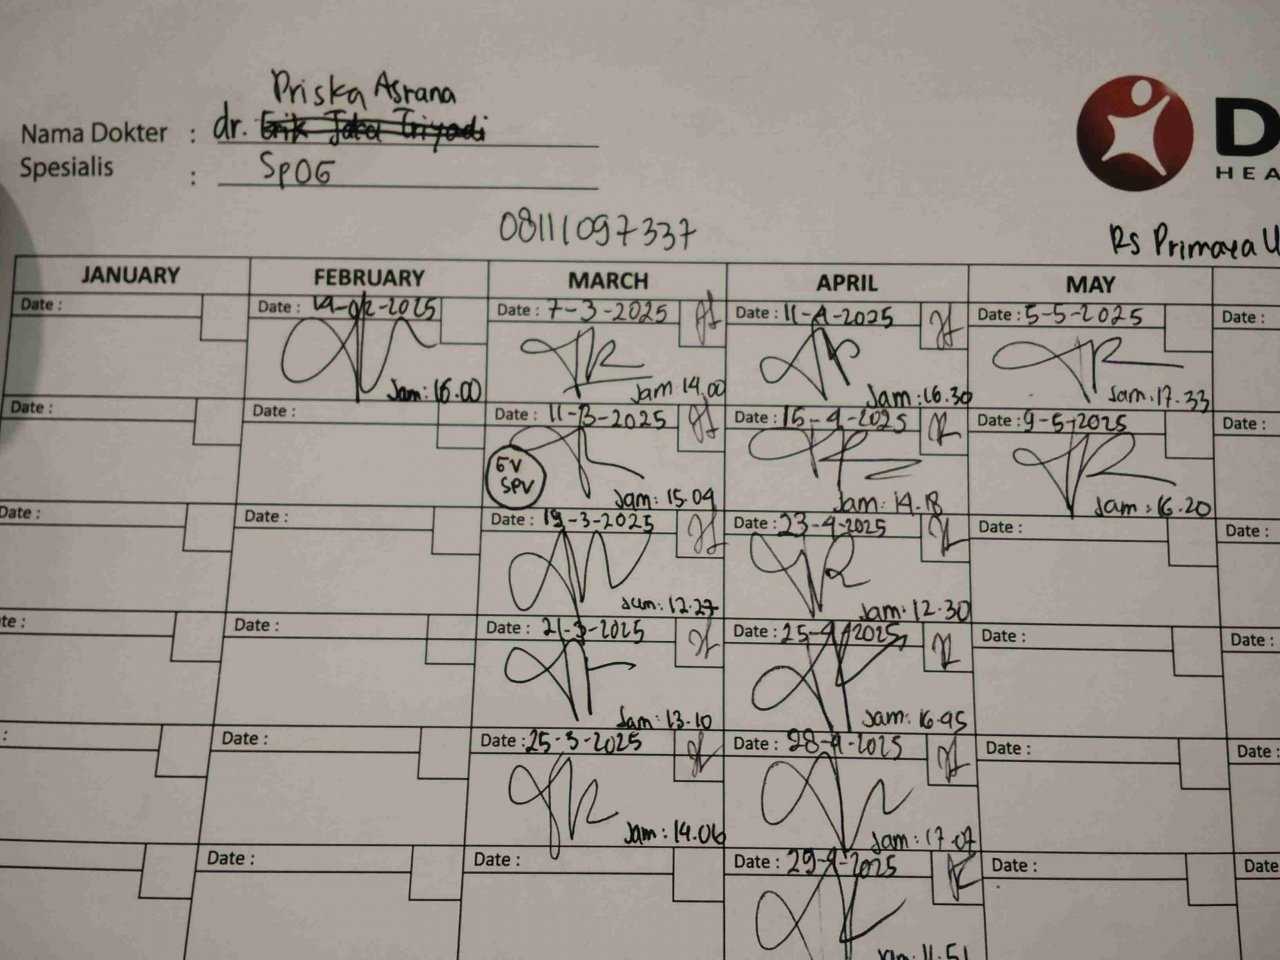 Priska Asrana
Nama Dokter : dr. Erik Joko Triyadi
Spesialis : SpOG
D
HEA
08111097337
RS Primaya U
JANUARY FEBRUARY MARCH APRIL MAY
Date : Date : 19-02-2025 Date : 7-3-2025 Date : 11-4-2025 Date : 5-5-2025 Date :
Jam: 16.00 Jam 14.00 Jam :16.30 Jam.17.33
Date : Date : Date : 11-3-2025 Date : 15-4-2025 Date : 9-5-2025 Date :
GV
SPV
Jam: 15.09 Jam: 14.18 Jam: 16.20
Date : Date : Date : 19-3-2025 Date : 23-4-2025 Date : Date :
Jam: 12.27 Jam: 12.30
te : Date : Date : 21-3-2025 Date : 25-4-2025 Date : Date :
Jam: 13.10 Jam: 16.45
: Date : Date : 25-3-2025 Date : 28-4-2025 Date : Date :
Jam: 14.06 Jam: 17.07
Date : Date : Date : 29-4-2025 Date : Date
Jam: 11.51